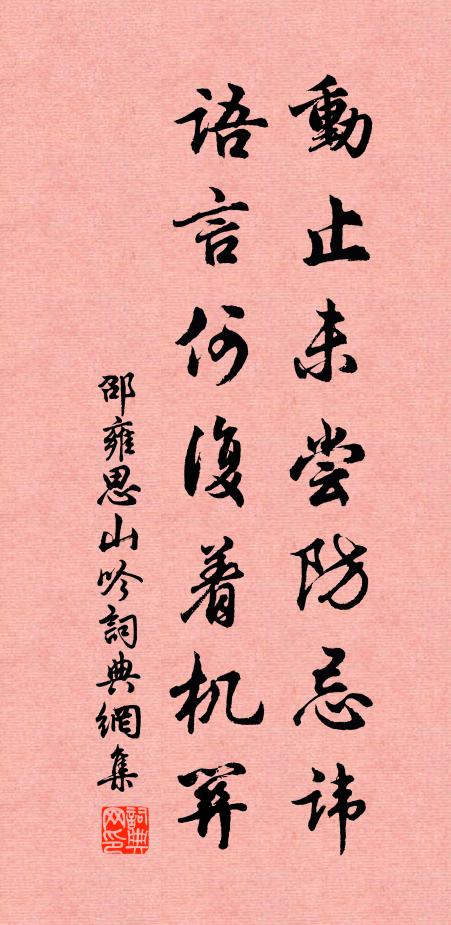 動止未尝防忌讳
语言何复着机关
邵雍思山吟詞典網集
詞典网印